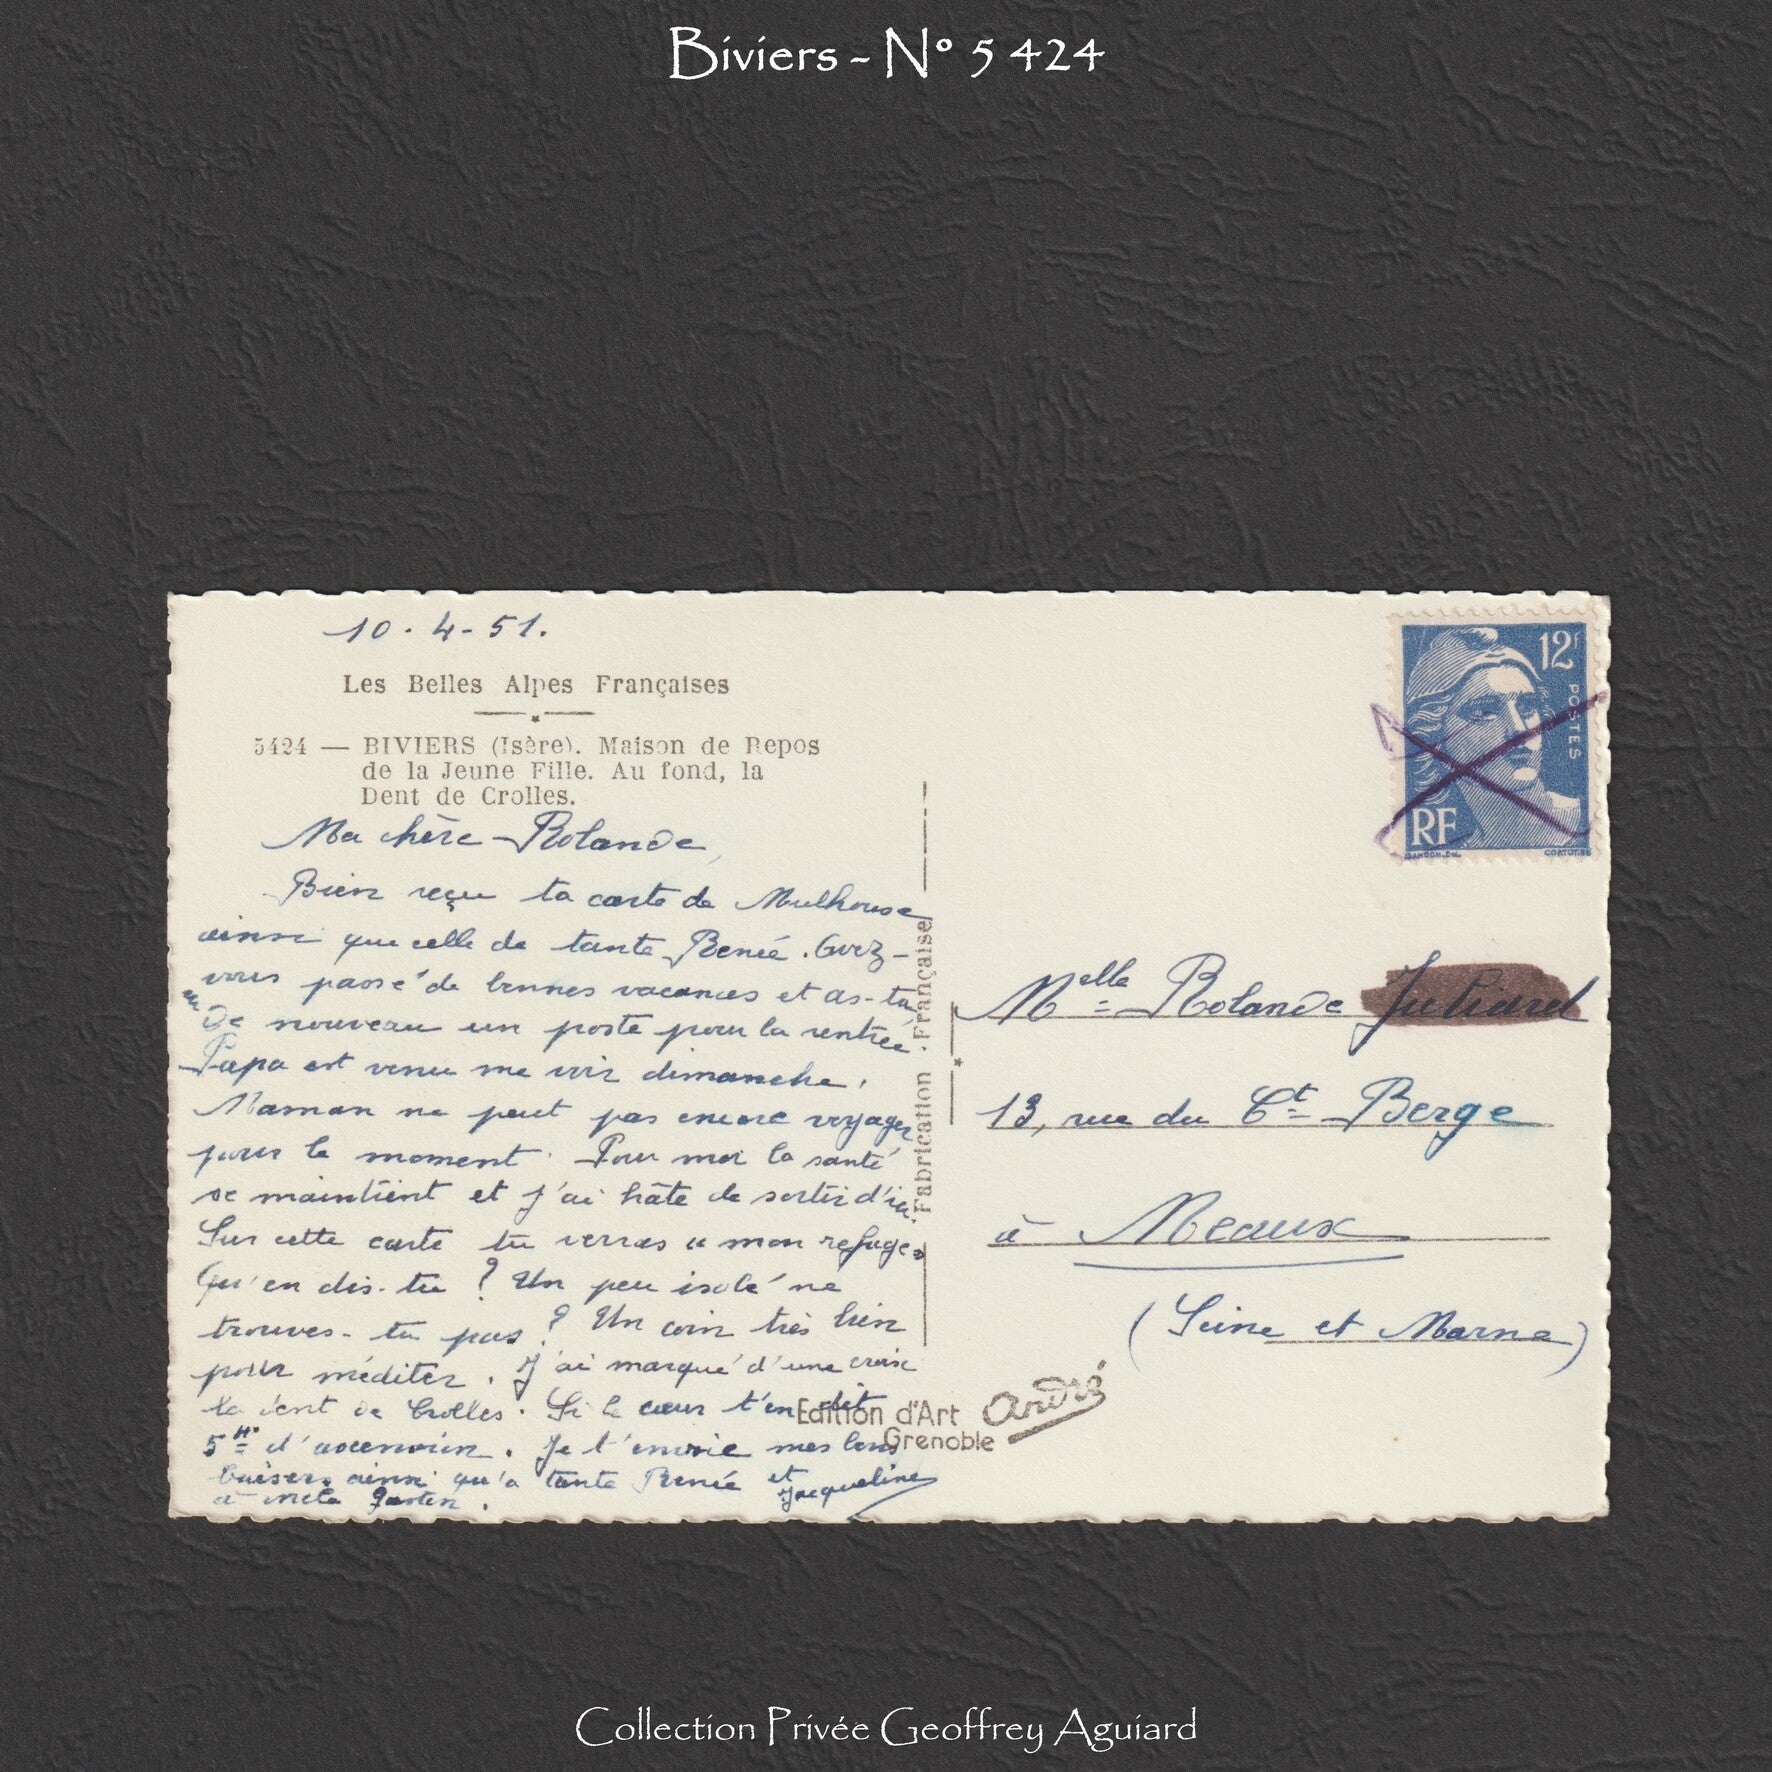 Biviers - N° 5 424
10-4-51.
Les Belles Alpes Françaises
5424 — BIVIERS (Isère). Maison de Repos
de la Jeune Fille. Au fond, la
Dent de Crolles.
Ma chère Rolande,
Bien reçu ta carte de Mulhouse
ainsi que celle de tante Renée. Avez-
vous passé de bonnes vacances et as-tu
eu de nouveau un poste pour la rentrée.
Papa est venu me voir dimanche.
Maman ne peut pas encore voyager
pour le moment. Pour moi la santé
se maintient et j'ai hâte de sortir d'ici.
Sur cette carte tu verras « mon refuge »
Qu'en dis-tu ? Un peu isolé ne
trouves-tu pas ? Un coin très bien
pour méditer. J'ai marqué d'une croix
la dent de Crolles. Si le cœur t'en dit
5 H d'ascension. Je t'envoie mes bons
baisers ainsi qu'à tante Renée et
à
Jacqueline
Fabrication Française
12f
POSTES
RF
GANDON.DEL.
CORTOT.SC
Melle Rolande
13, rue du Ct Berge
à Meaux
(Seine et Marne)
Edition d'Art André
Grenoble
Collection Privée Geoffrey Aguiard